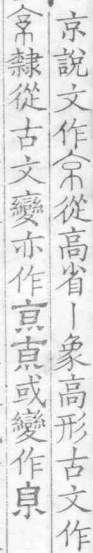 京說文作𠅃從高省丨象高形古文作
𠅃隸從古文變亦作亰亰或變作㫗